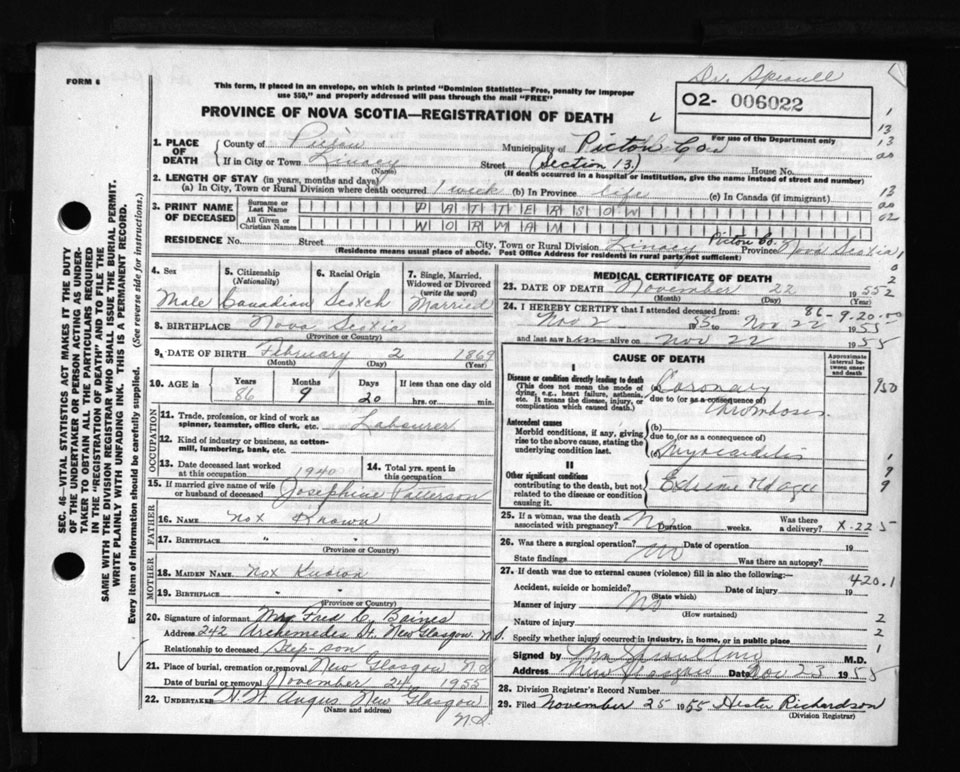 FORM 6
Dr. Sproull
This form, if placed in an envelope, on which is printed "Dominion Statistics—Free, penalty for improper
use $50," and properly addressed will pass through the mail "FREE"
02- 006022
PROVINCE OF NOVA SCOTIA—REGISTRATION OF DEATH
For use of the Department only
1. PLACE OF DEATH
County of Pictou Municipality of Pictou Co.
If in City or Town Linacy Street (Section 13.) House No.
(Name) (If death occurred in a hospital or institution, give the name instead of street and number)
2. LENGTH OF STAY (in years, months and days)
(a) In City, Town or Rural Division where death occurred 1 week (b) In Province life (c) In Canada (if immigrant)
3. PRINT NAME OF DECEASED
Surname or Last Name PATTERSON
All Given or Christian Names NORMAN
RESIDENCE No. Street City, Town or Rural Division Linacy Pictou Co. Province Nova Scotia
(Residence means usual place of abode. Post Office Address for residents in rural parts not sufficient)
4. Sex
Male
5. Citizenship
(Nationality)
Canadian
6. Racial Origin
Scotch
7. Single, Married, Widowed or Divorced
(write the word)
Married
8. BIRTHPLACE Nova Scotia
(Province or Country)
9. DATE OF BIRTH February 2 1869
(Month) (Day) (Year)
10. AGE in Years Months Days If less than one day old
86 9 20 hrs. or min.
OCCUPATION
11. Trade, profession, or kind of work as
spinner, teamster, office clerk, etc. Labourer
12. Kind of industry or business, as cotton-
mill, lumbering, bank, etc.
13. Date deceased last worked
at this occupation 1940
14. Total yrs. spent in
this occupation
15. If married give name of wife
or husband of deceased Josephine Patterson
FATHER
16. NAME Not Known
17. BIRTHPLACE " "
(Province or Country)
MOTHER
18. MAIDEN NAME Not Known
19. BIRTHPLACE " "
(Province or Country)
20. Signature of informant Mr. Fred C. Baines
Address 242 Archemedes St. New Glasgow N.S.
Relationship to deceased Step-son
21. Place of burial, cremation or removal New Glasgow N.S.
Date of burial or removal November 24 1955
22. UNDERTAKER Angus New Glasgow
(Name and address) N.S.
MEDICAL CERTIFICATE OF DEATH
23. DATE OF DEATH November 22 1955
(Month) (Day) (Year)
24. I HEREBY CERTIFY that I attended deceased from: 86-9-20-00
Nov 2 1955 to Nov 22 1955
and last saw him alive on Nov 22 1955
CAUSE OF DEATH
Approximate interval between onset and death
I
Disease or condition directly leading to death
(This does not mean the mode of
dying, e.g., heart failure, asthenia,
etc. It means the disease, injury, or
complication which caused death.)
(a) Coronary
due to (or as a consequence of)
Thrombosis
Antecedent causes
Morbid conditions, if any, giving
rise to the above cause, stating the
underlying condition last.
(b)
due to (or as a consequence of)
(c) Myocarditis
II
Other significant conditions
contributing to the death, but not
related to the disease or condition
causing it.
Extreme old age
25. If a woman, was the death
associated with pregnancy? No Duration weeks. Was there
a delivery? X-225
26. Was there a surgical operation? no Date of operation 19
State findings Was there an autopsy?
27. If death was due to external causes (violence) fill in also the following:—
420.1
Accident, suicide or homicide? Date of injury 19
(State which)
Manner of injury No
(How sustained)
Nature of injury
Specify whether injury occurred in industry, in home, or in public place
Signed by Sproull M.D.
Address New Glasgow Date Nov 23 1955
28. Division Registrar's Record Number
29. Filed November 25 1955 Hester Richardson
(Division Registrar)
SEC. 46—VITAL STATISTICS ACT MAKES IT THE DUTY
OF THE UNDERTAKER OR PERSON ACTING AS UNDER-
TAKER TO OBTAIN ALL THE PARTICULARS REQUIRED
IN THE "REGISTRATION OF DEATH" AND TO FILE THE
SAME WITH THE DIVISION REGISTRAR WHO SHALL ISSUE THE BURIAL PERMIT.
WRITE PLAINLY WITH UNFADING INK. THIS IS A PERMANENT RECORD.
Every item of information should be carefully supplied. (See reverse side for instructions.)